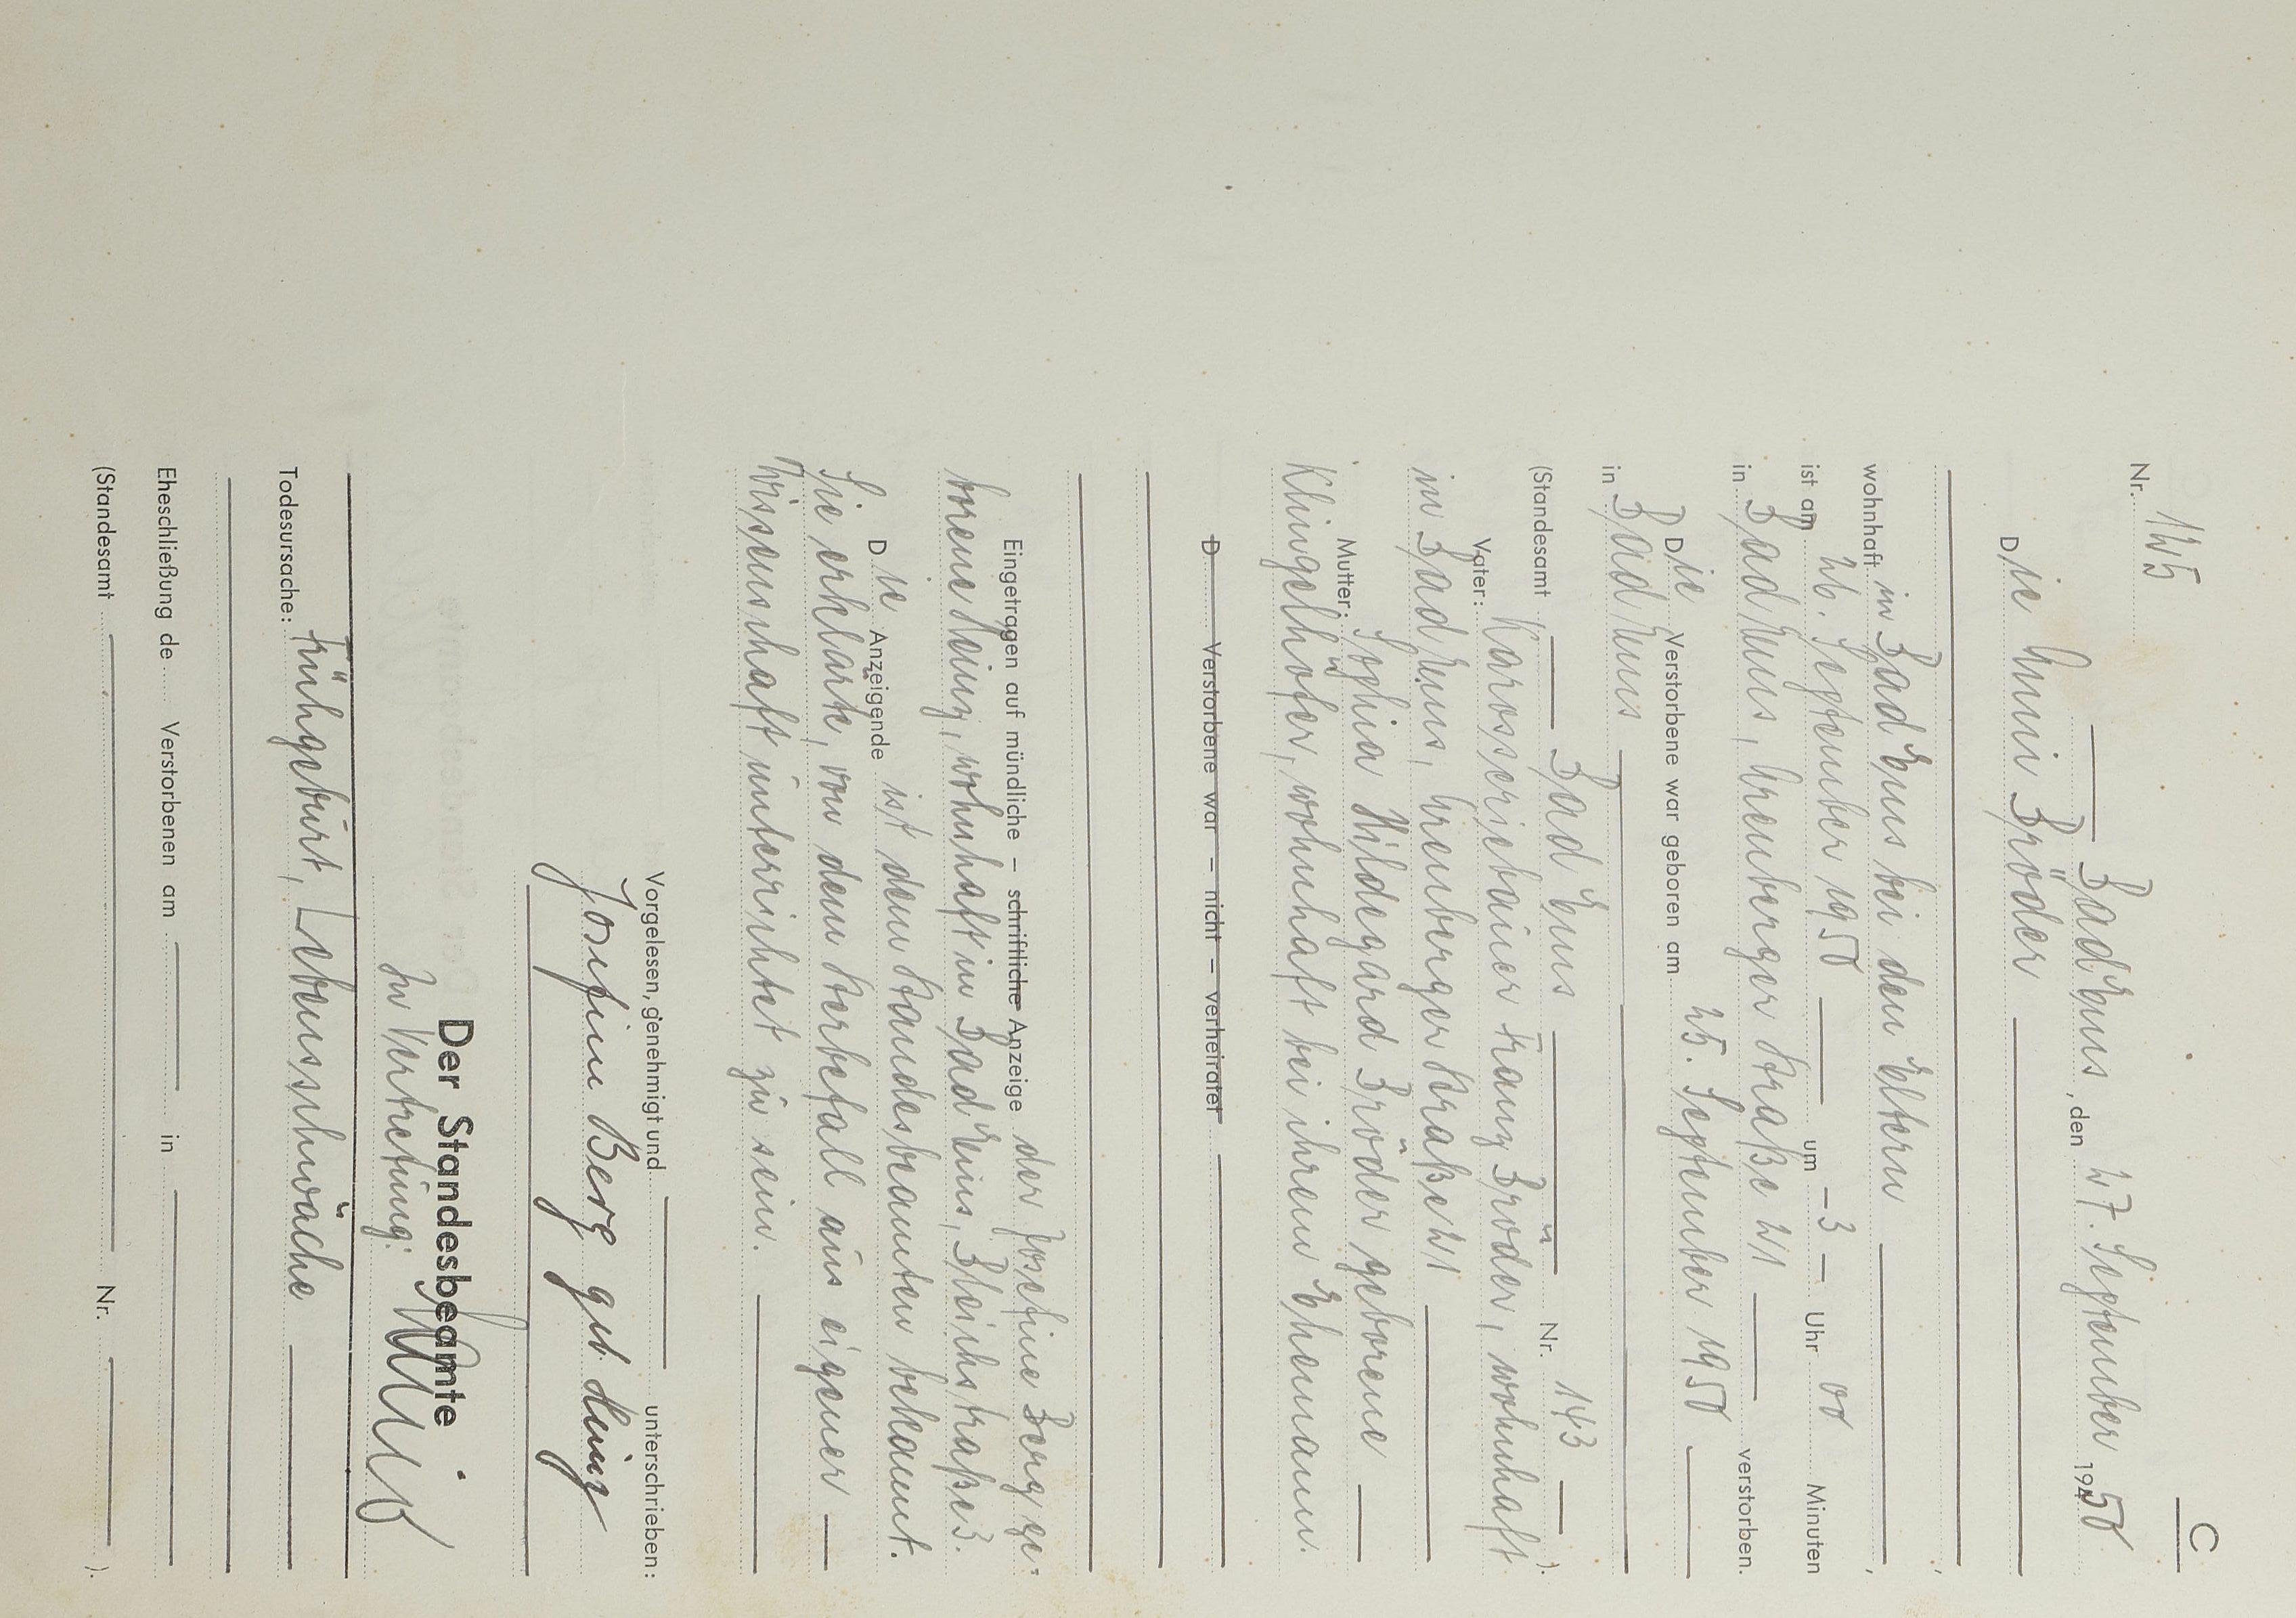 C
Nr. 125
Bad Ems, den 27. September 1950
Die Anni Bröder
wohnhaft in Bad Ems bei den Eltern ,
ist am 26. September 1950 um -3- Uhr 00 Minuten
in Bad Ems, Arenberger Straße 21 verstorben.
Die Verstorbene war geboren am 25. September 1950
in Bad Ems
(Standesamt Bad Ems Nr. 143 ).
Vater: Karosseriebauer Franz Bröder, wohnhaft
in Bad Ems, Arenberger Straße 21
Mutter: Sophia Hildegard Bröder geborene
Klingelhöfer, wohnhaft bei ihrem Ehemann.
D Verstorbene war – nicht – verheiratet
Eingetragen auf mündliche – schriftliche Anzeige der Josefine Berg ge-
borene Heinz, wohnhaft in Bad Ems, Bleichstraße 3.
Die Anzeigende ist dem Standesbeamten bekannt.
Sie erklärte, von dem Sterbefall aus eigener
Wissenschaft unterrichtet zu sein.
Vorgelesen, genehmigt und unterschrieben:
Josefine Berg geb. Heinz
Der Standesbeamte
In Vertretung:
Todesursache: Frühgeburt, Lebensschwäche
Eheschließung de Verstorbenen am in
(Standesamt Nr. ).